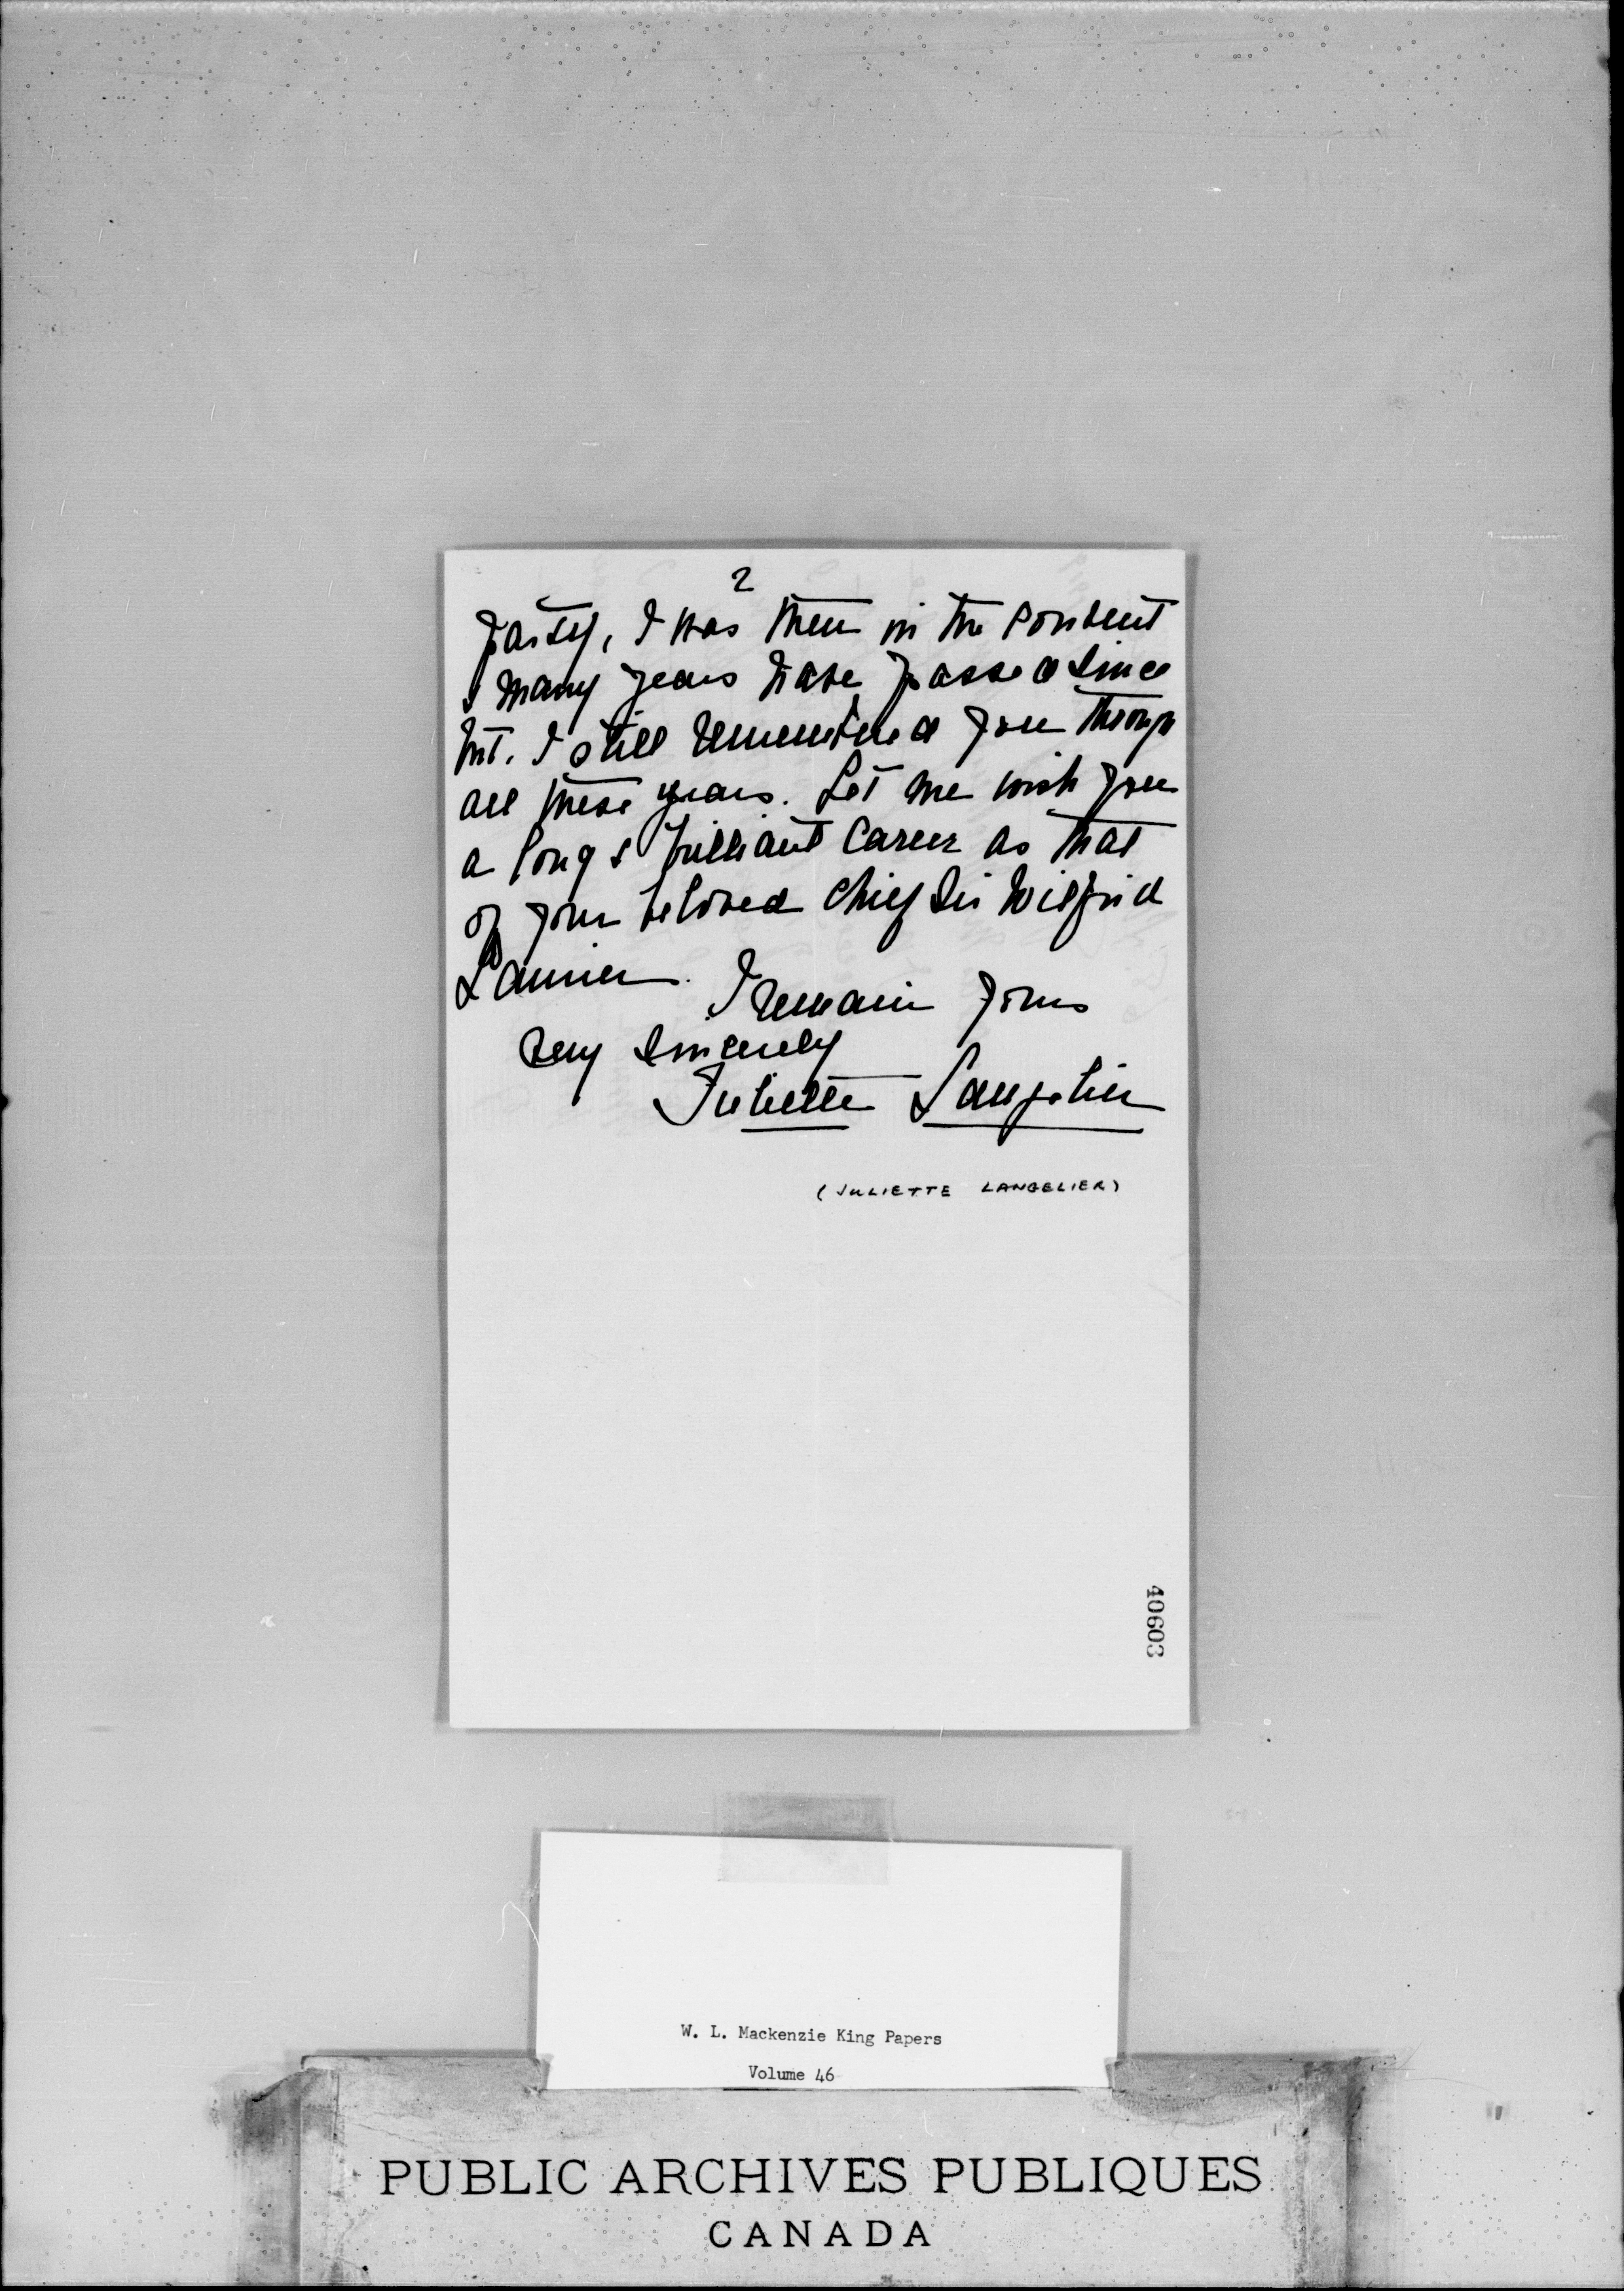 2
party, I was then in the convent
& many years have passed since
but. I still remembered you through
all these years. Let me wish you
a long & brilliant career as that
of your beloved chief Sir Wilfrid
Laurier. I remain yours
very sincerely
Juliette Langelier
(JULIETTE LANGELIER)
40603
W. L. Mackenzie King Papers
Volume 46
PUBLIC ARCHIVES PUBLIQUES
CANADA